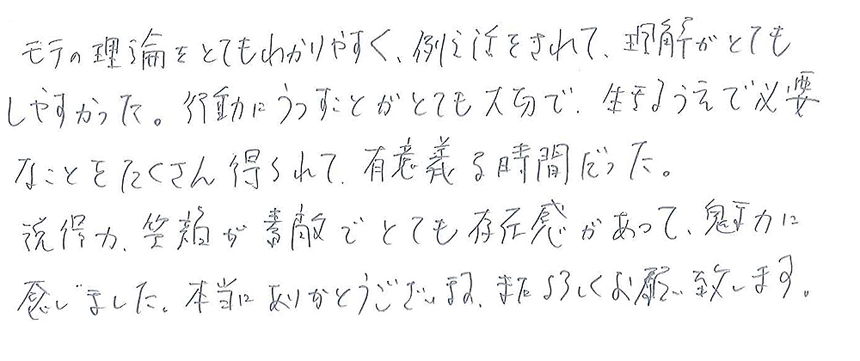 モテの理論をとてもわかりやすく、例え話をされて、理解がとても
しやすかった。行動にうつすことがとても大切で、生きるうえで必要
なことをたくさん得られて、有意義る時間だった。
説得力、笑顔が素敵でとても存在感があって、魅力に
感じました。本当にありがとうございます、またよろしくお願い致します。